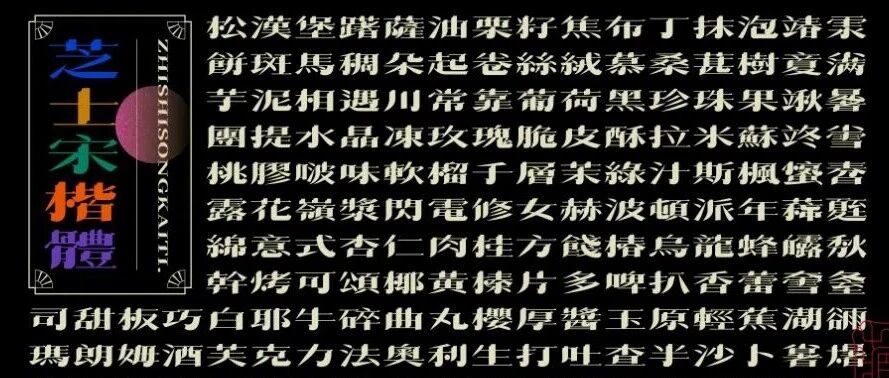 芝士宋楷體
ZHISHISONGKAITI.
松漢堡躇薩油栗籽焦布丁抹泡靖霂
餅斑馬稠朵起卷絲絨慕桑甚樹夏滿
芋泥相遇川常靠葡荷黑珍珠果啾暑
團提水晶凍玫瑰脆皮酥拉米蘇終雪
桃膠啵味軟榴千層茉綠汁斯楓蜜春
露花嶺漿閃電修女赫波頓派年蒜
綿意式杏仁肉桂方餞椿烏龍蜂秋
幹烤可頌椰黃榛片多啤扒香蕾
司甜板巧白耶牛碎曲丸櫻厚醬玉原輕蕉湖
瑪朗姆酒芙克力法奧利生打吐查半沙卜